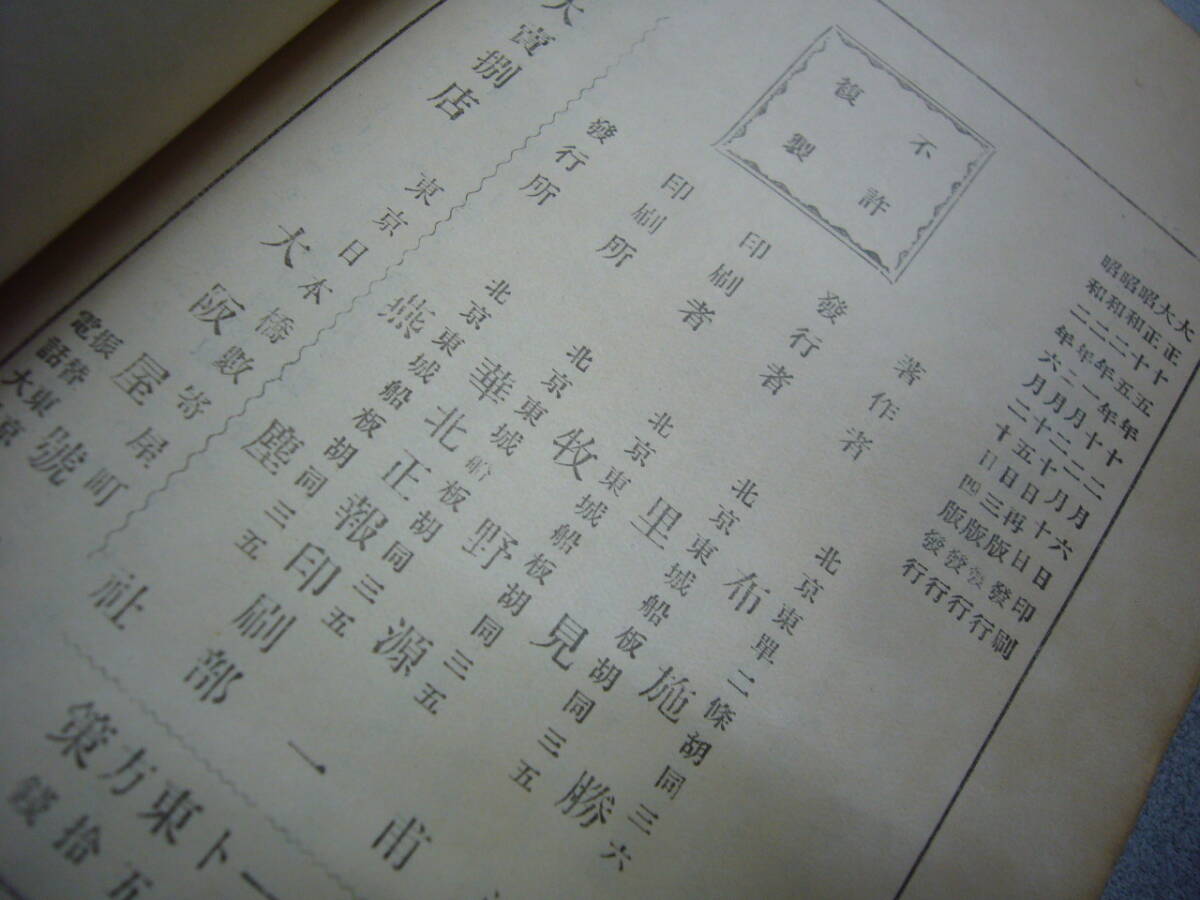 大正十五年十二月十六日印刷
大正十五年十二月二十日發行
昭和二年一月二十日再版發行
昭和二年二月十五日三版發行
昭和二年六月二十日四版發行
不許
複製
著作者
北京東單二條胡同三六
布施勝
發行者
北京東城船板胡同三五
里見甫
印刷者
北京東城船板胡同三五
牧野源一
印刷所
北京東城船板胡同三五
華北正報印刷部
發行所
北京東城船板胡同三五
燕塵社
大賣捌店
東京日本橋數寄屋町
大阪屋號
振替東京
電話大
ト東方策
五拾錢